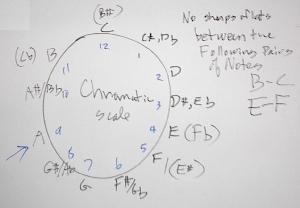 (B#)
C
12
C#, Db
1
D
2
D#, Eb
3
E (Fb)
4
F/(E#)
5
F#/Gb
6
G
7
G#/Ab
8
A
9
A#/Bb
10
B
(Cb)
11
Chromatic
scale
No sharps/flats
between the
Following Pairs
of Notes
B-C
E-F